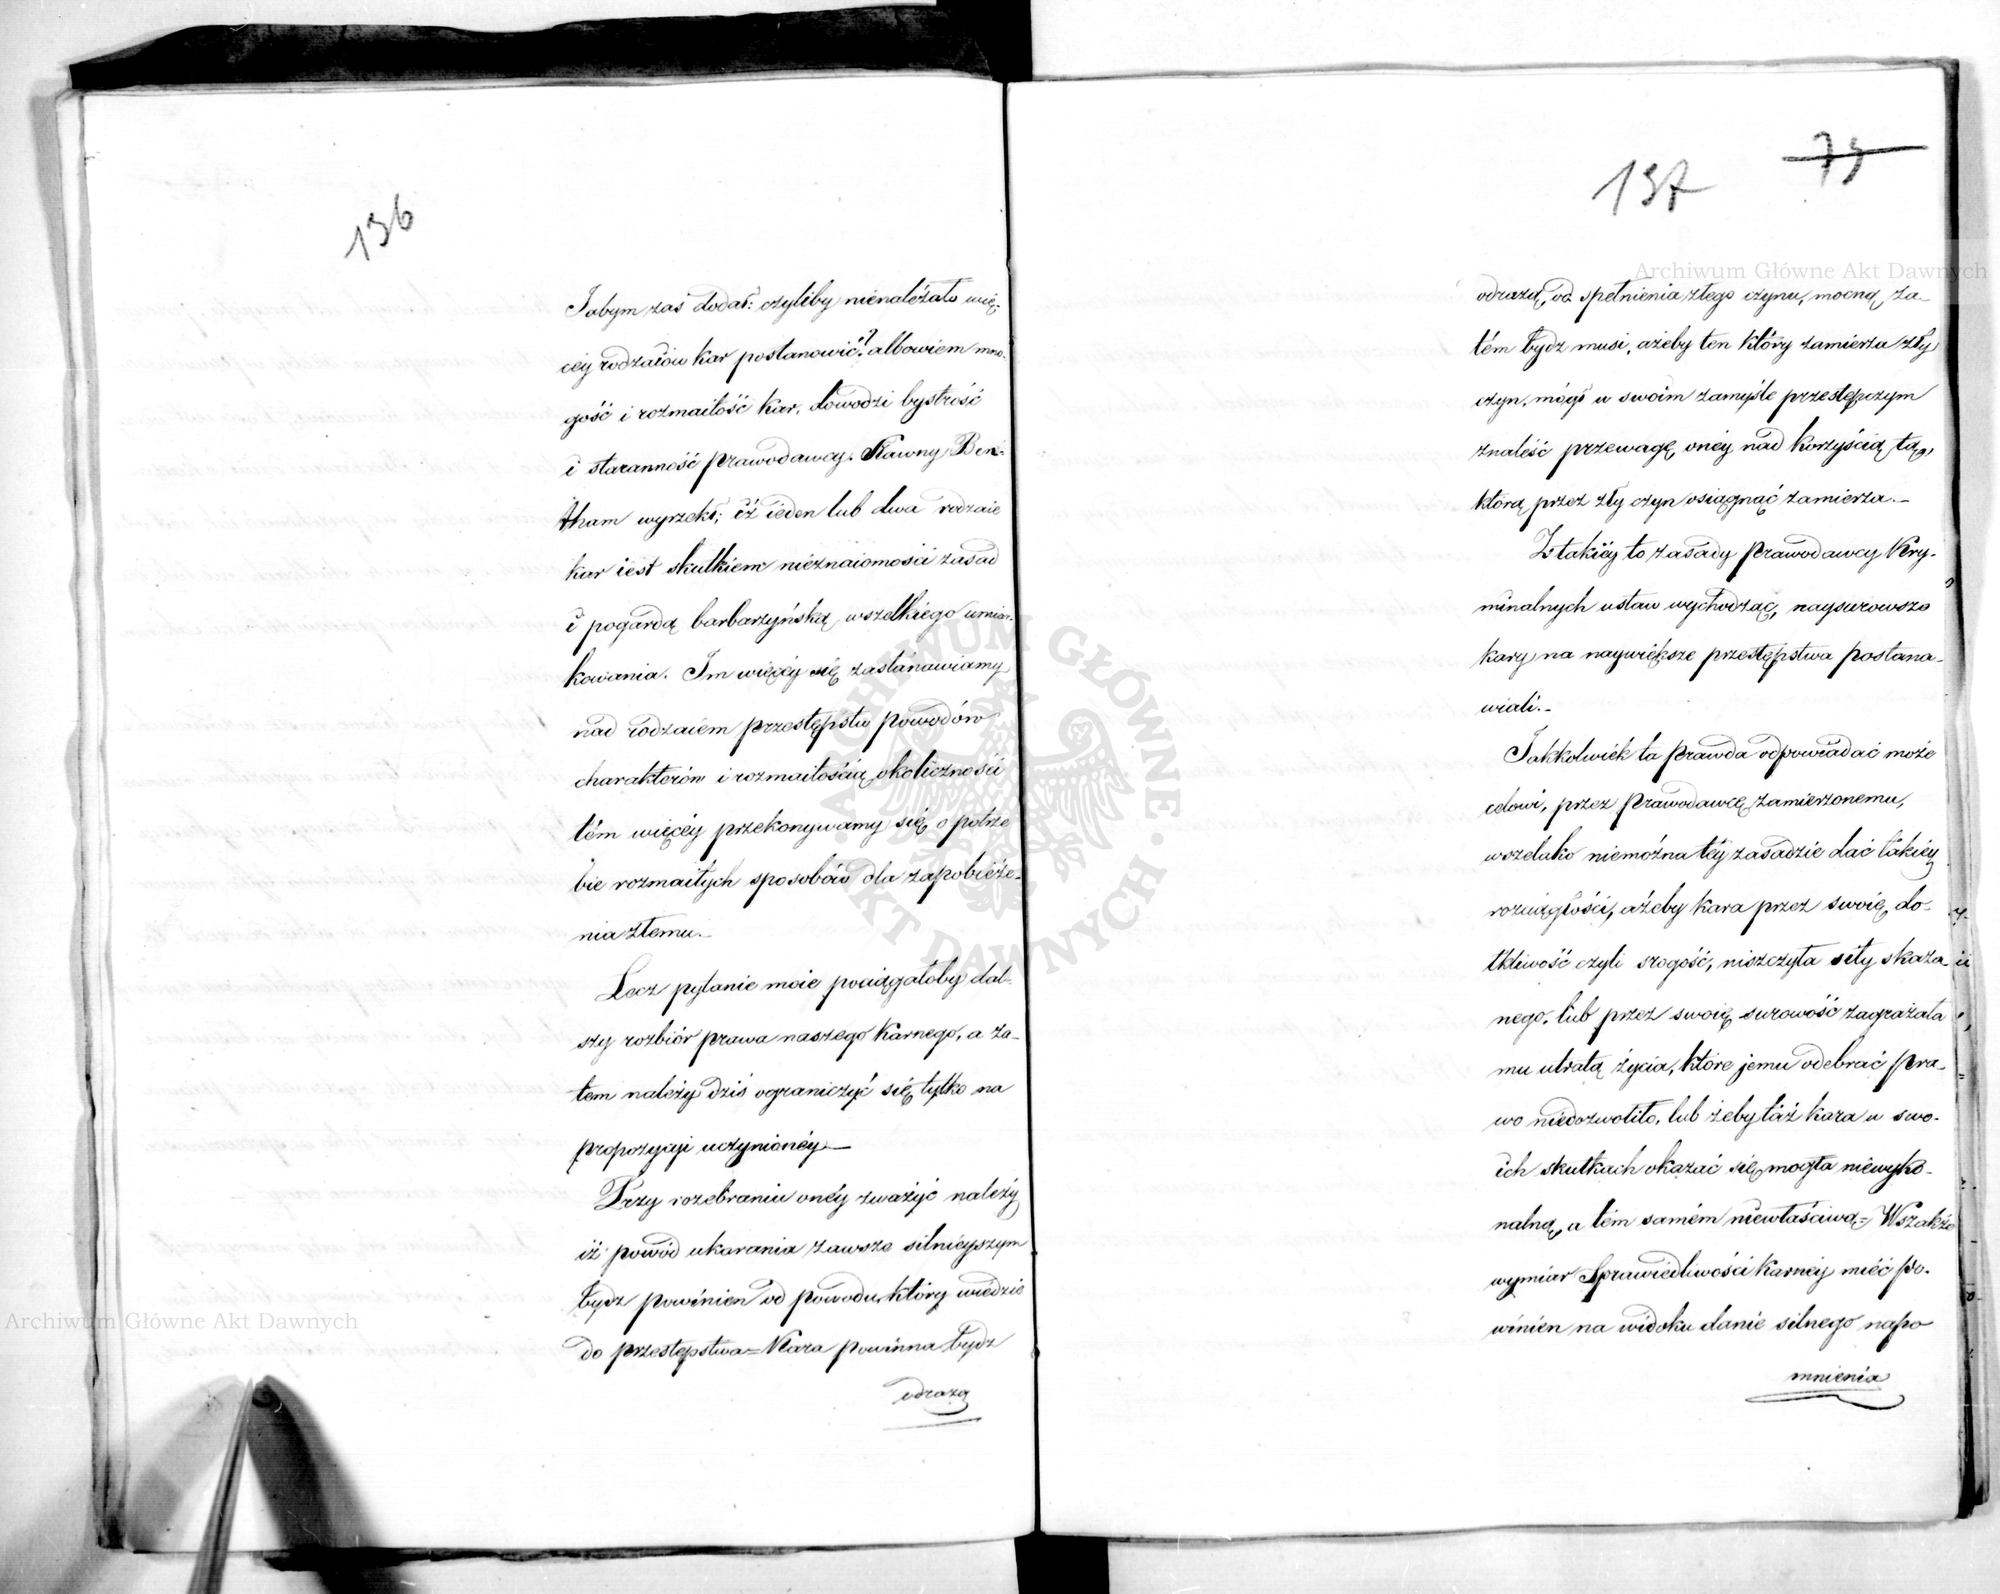 136
Jabym zaś dodał: czyliby nienależało wię-
céy rodzaiów kar postanowić? albowiem mno-
gość i rozmaitość kar, dowodzi bystrość
i staranność prawodawcy. Sławny Ben-
tham wyrzekł; iż ieden lub dwa rodzaie
kar iest skutkiem nieznaiomości zasad
i pogardą barbarzyńską wszelkiego umiar-
kowania. Im więcéy się zastanawiamy
nad rodzaiem przestępstw powodów
charakterów i rozmaitością okoliczności
tém więcéy przekonywamy się o potrze
bie rozmaitych sposobów dla zapobieże-
nia złemu.-
Lecz pytanie moie pociągałoby dal-
szy rozbiór prawa naszego Karnego, a za-
tem należy dziś ograniczyć się tylko na
propozycji uczynionéy-
Przy rozebraniu onéy zważyć należy
iż powód ukarania zawsze silnieyszym
bydz powinien od powodu, który wiedzie
do przestępstwa= Kara powinna bydz
odrazą
137
73
odrazą, od spełnienia złego czynu, mocną za-
tém bydz musi, ażeby ten który zamierza zły
czyn, mógł w swoim zamyśle przestępczym
znaleść przewagę onéy nad korzyścią tą,
którą przez zły czyn osiągnąć zamierza.-
Z takiéy to zasady prawodawcy Kry-
minalnych ustaw wychodząc, naysurowsze
kary na naywiększe przestępstwa postana-
wiali.-
Jakkolwiek ta prawda odpowiadać może
celowi, przez prawodawcę zamierzonemu,
wszelako niemożna téy zasadzie dać takiéy
rozciągłości, ażeby kara przez swoię do-
tkliwość czyli srogość, niszczyła siły skaza-
nego, lub przez swoię surowość zagrażała
mu utratą życia, które jemu odebrać pra-
wo niedozwoliło, lub żeby taż kara w swo-
ich skutkach okazać się mogła niewyko-
nalną, a tém samém niewłaściwą= Wszakże
wymiar Sprawiedliwości Karnéy mieć po-
winien na widoku danie silnego napo
mnienia
Archiwum Główne Akt Dawnych
Archiwum Główne Akt Dawnych
ARCHIWUM GŁÓWNE AKT DAWNYCH